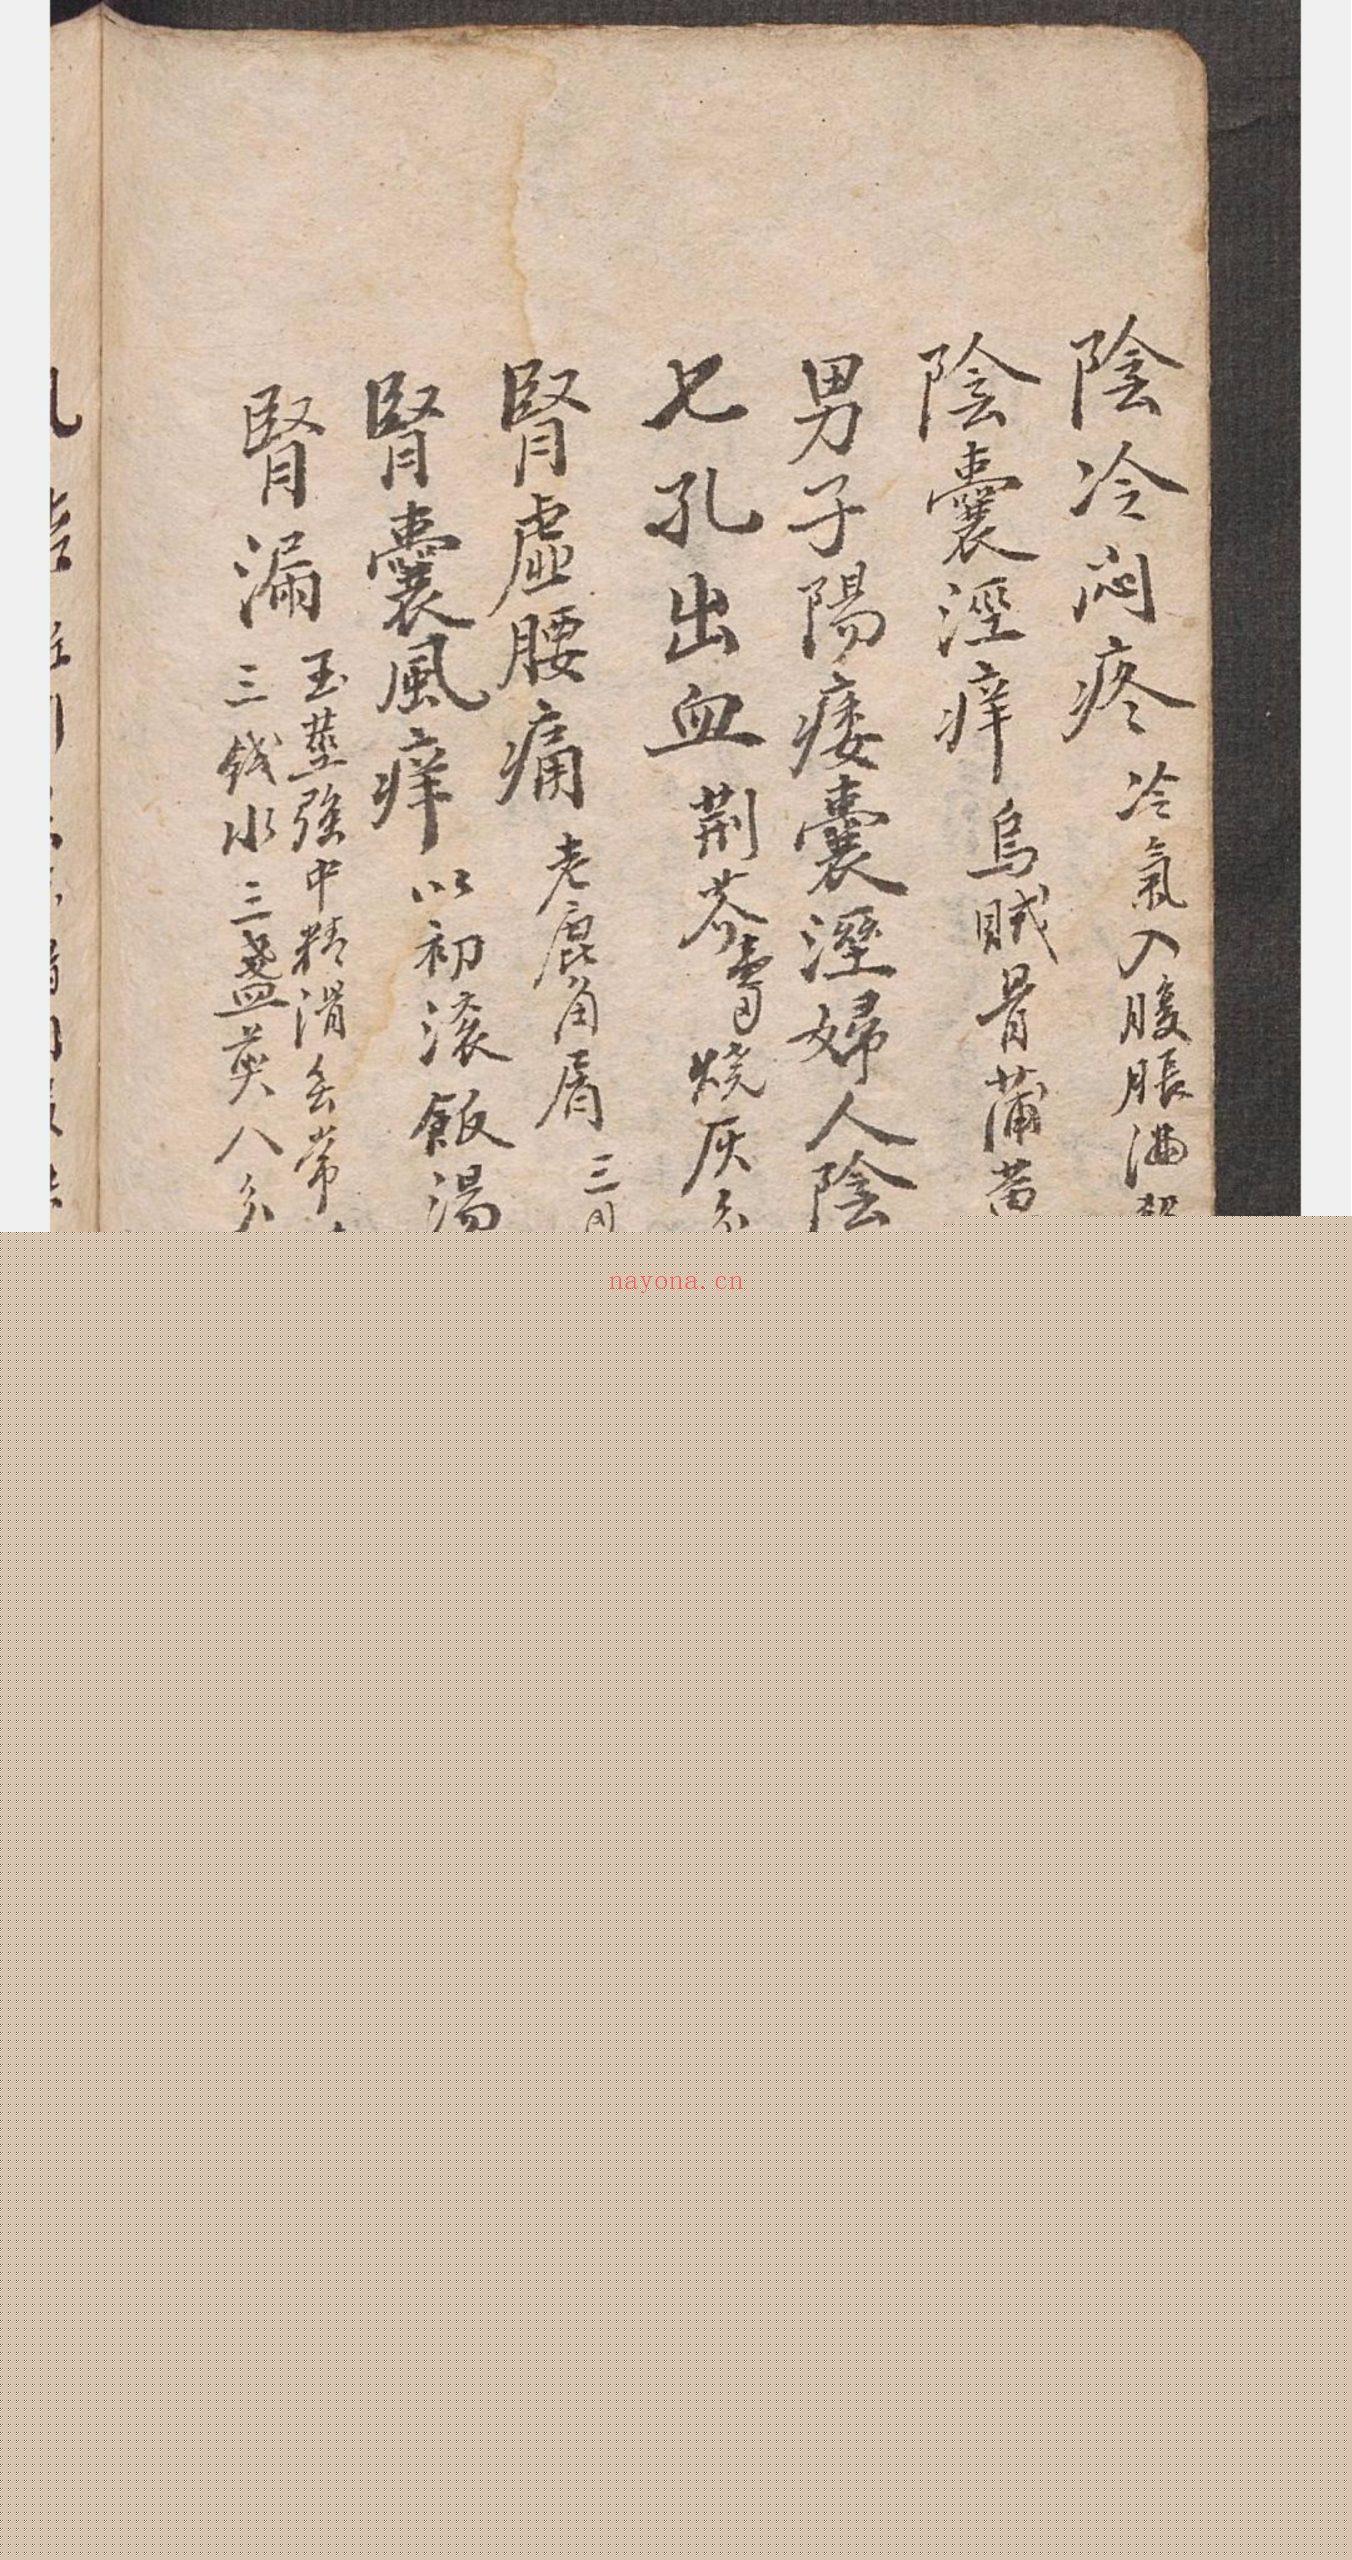 陰冷悶疼 冷氣入腹脹滿
陰囊溼痒 烏賊骨蒲黃
男子陽痿囊溼婦人陰
七孔出血 荆芥 燒灰
腎虛腰痛 老鹿角屑 三
腎囊風痒 以初滚飯湯
腎漏 玉莖強中精滑無常
三錢水三盞煎八分
nayona.cn